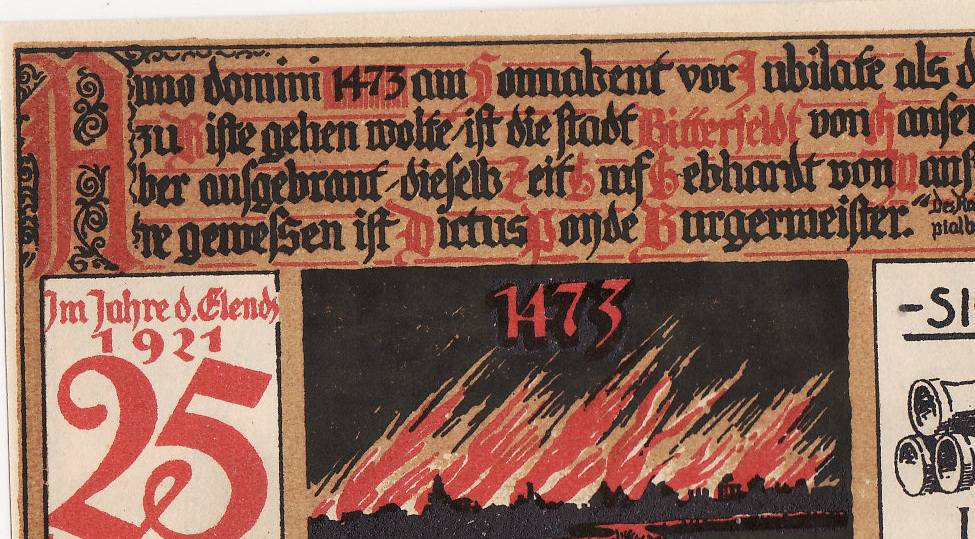 Anno domini 1473 am Sonnabent vor Jubilate als d
zu Riste gehen wolte, ist die stadt Bitterfeldt von Hansen
ber ausgebrant, dieselb Zeit G auf Gebhardt von Mansf
re gewessen ist Dictus Ponde Burgermeister."
Im Jahre d. Elends
1921
25
1473
-SI